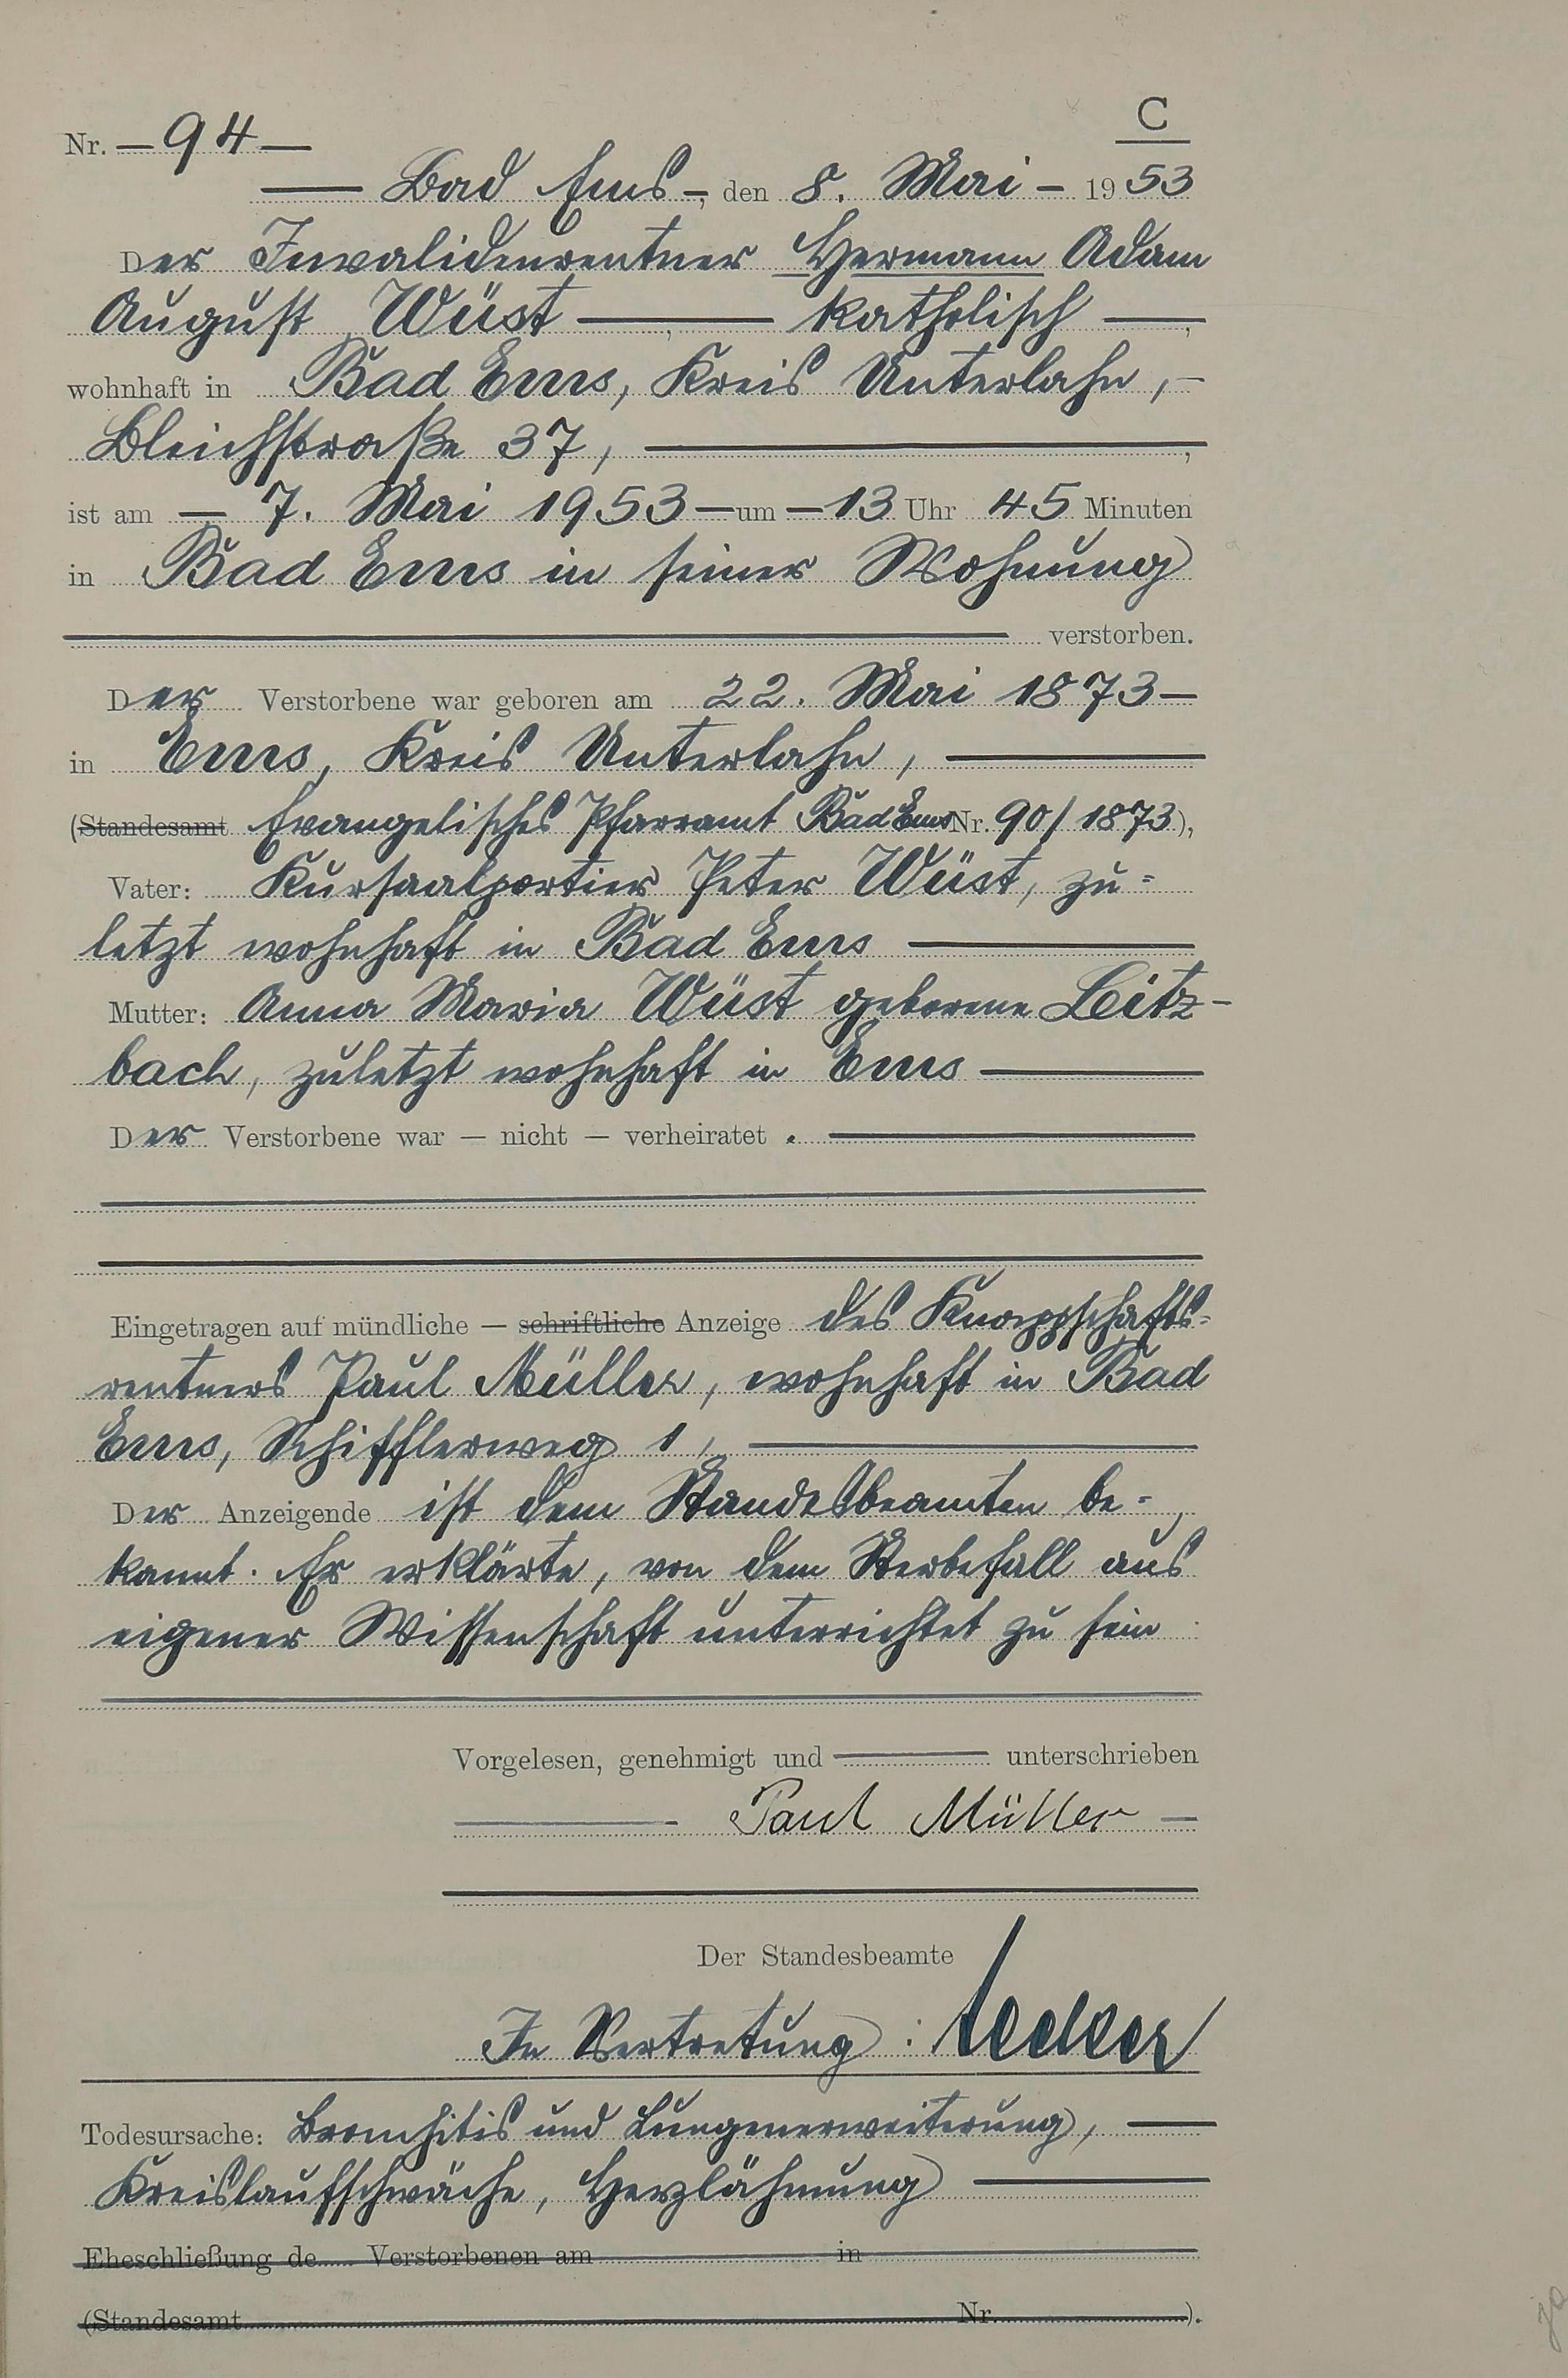 C
Nr. — 94 —
— Bad Ems —, den 8. Mai — 1953
Der Invalidenrentner Hermann Adam
August Wüst — , — katholisch — ,
wohnhaft in Bad Ems, Kreis Unterlahn, —
Bleichstraße 37, — ,
ist am — 7. Mai 1953 — um — 13 Uhr 45 Minuten
in Bad Ems in seiner Wohnung
— verstorben.
Der Verstorbene war geboren am 22. Mai 1873 —
in Ems, Kreis Unterlahn, —
(Standesamt Evangelisches Pfarramt Bad Ems Nr. 90/1873),
Vater: Kursaalportier Peter Wüst, zu=
letzt wohnhaft in Bad Ems —
Mutter: Anna Maria Wüst geborene Leitz-
bach, zuletzt wohnhaft in Ems —
Der Verstorbene war — nicht — verheiratet. —
Eingetragen auf mündliche — schriftliche Anzeige des Knappschafts=
rentners Paul Müller, wohnhaft in Bad
Ems, Schifflerweg 1, —
Der Anzeigende ist dem Standesbeamten be=
kannt. Er erklärte, von dem Sterbefall aus
eigener Wissenschaft unterrichtet zu sein.
Vorgelesen, genehmigt und — unterschrieben
— Paul Müller —
Der Standesbeamte
In Vertretung:
Todesursache: Bronchitis und Lungenerweiterung, —
Kreislaufschwäche, Herzlähmung —
Eheschließung de Verstorbenen am in
(Standesamt Nr. ).